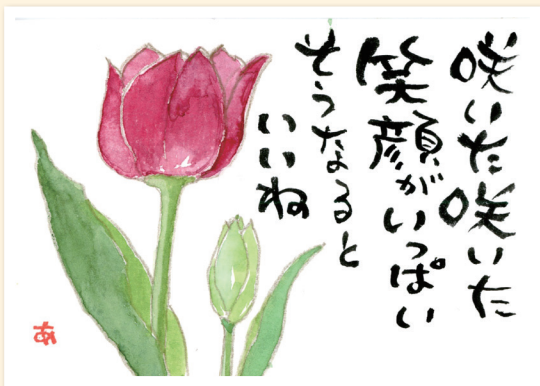 咲いた咲いた
笑顔がいっぱい
そうなると
いいね
あ